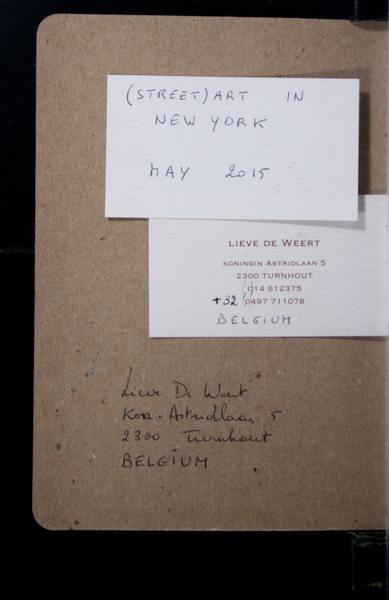 (STREET) ART IN
NEW YORK
MAY 2015
LIEVE DE WEERT
KONINGIN ASTRIDLAAN 5
2300 TURNHOUT
(0)14 612375
+32 (0)497 711078
BELGIUM
Lieve De Weert
Kon. Astridlaan 5
2300 Turnhout
BELGIUM